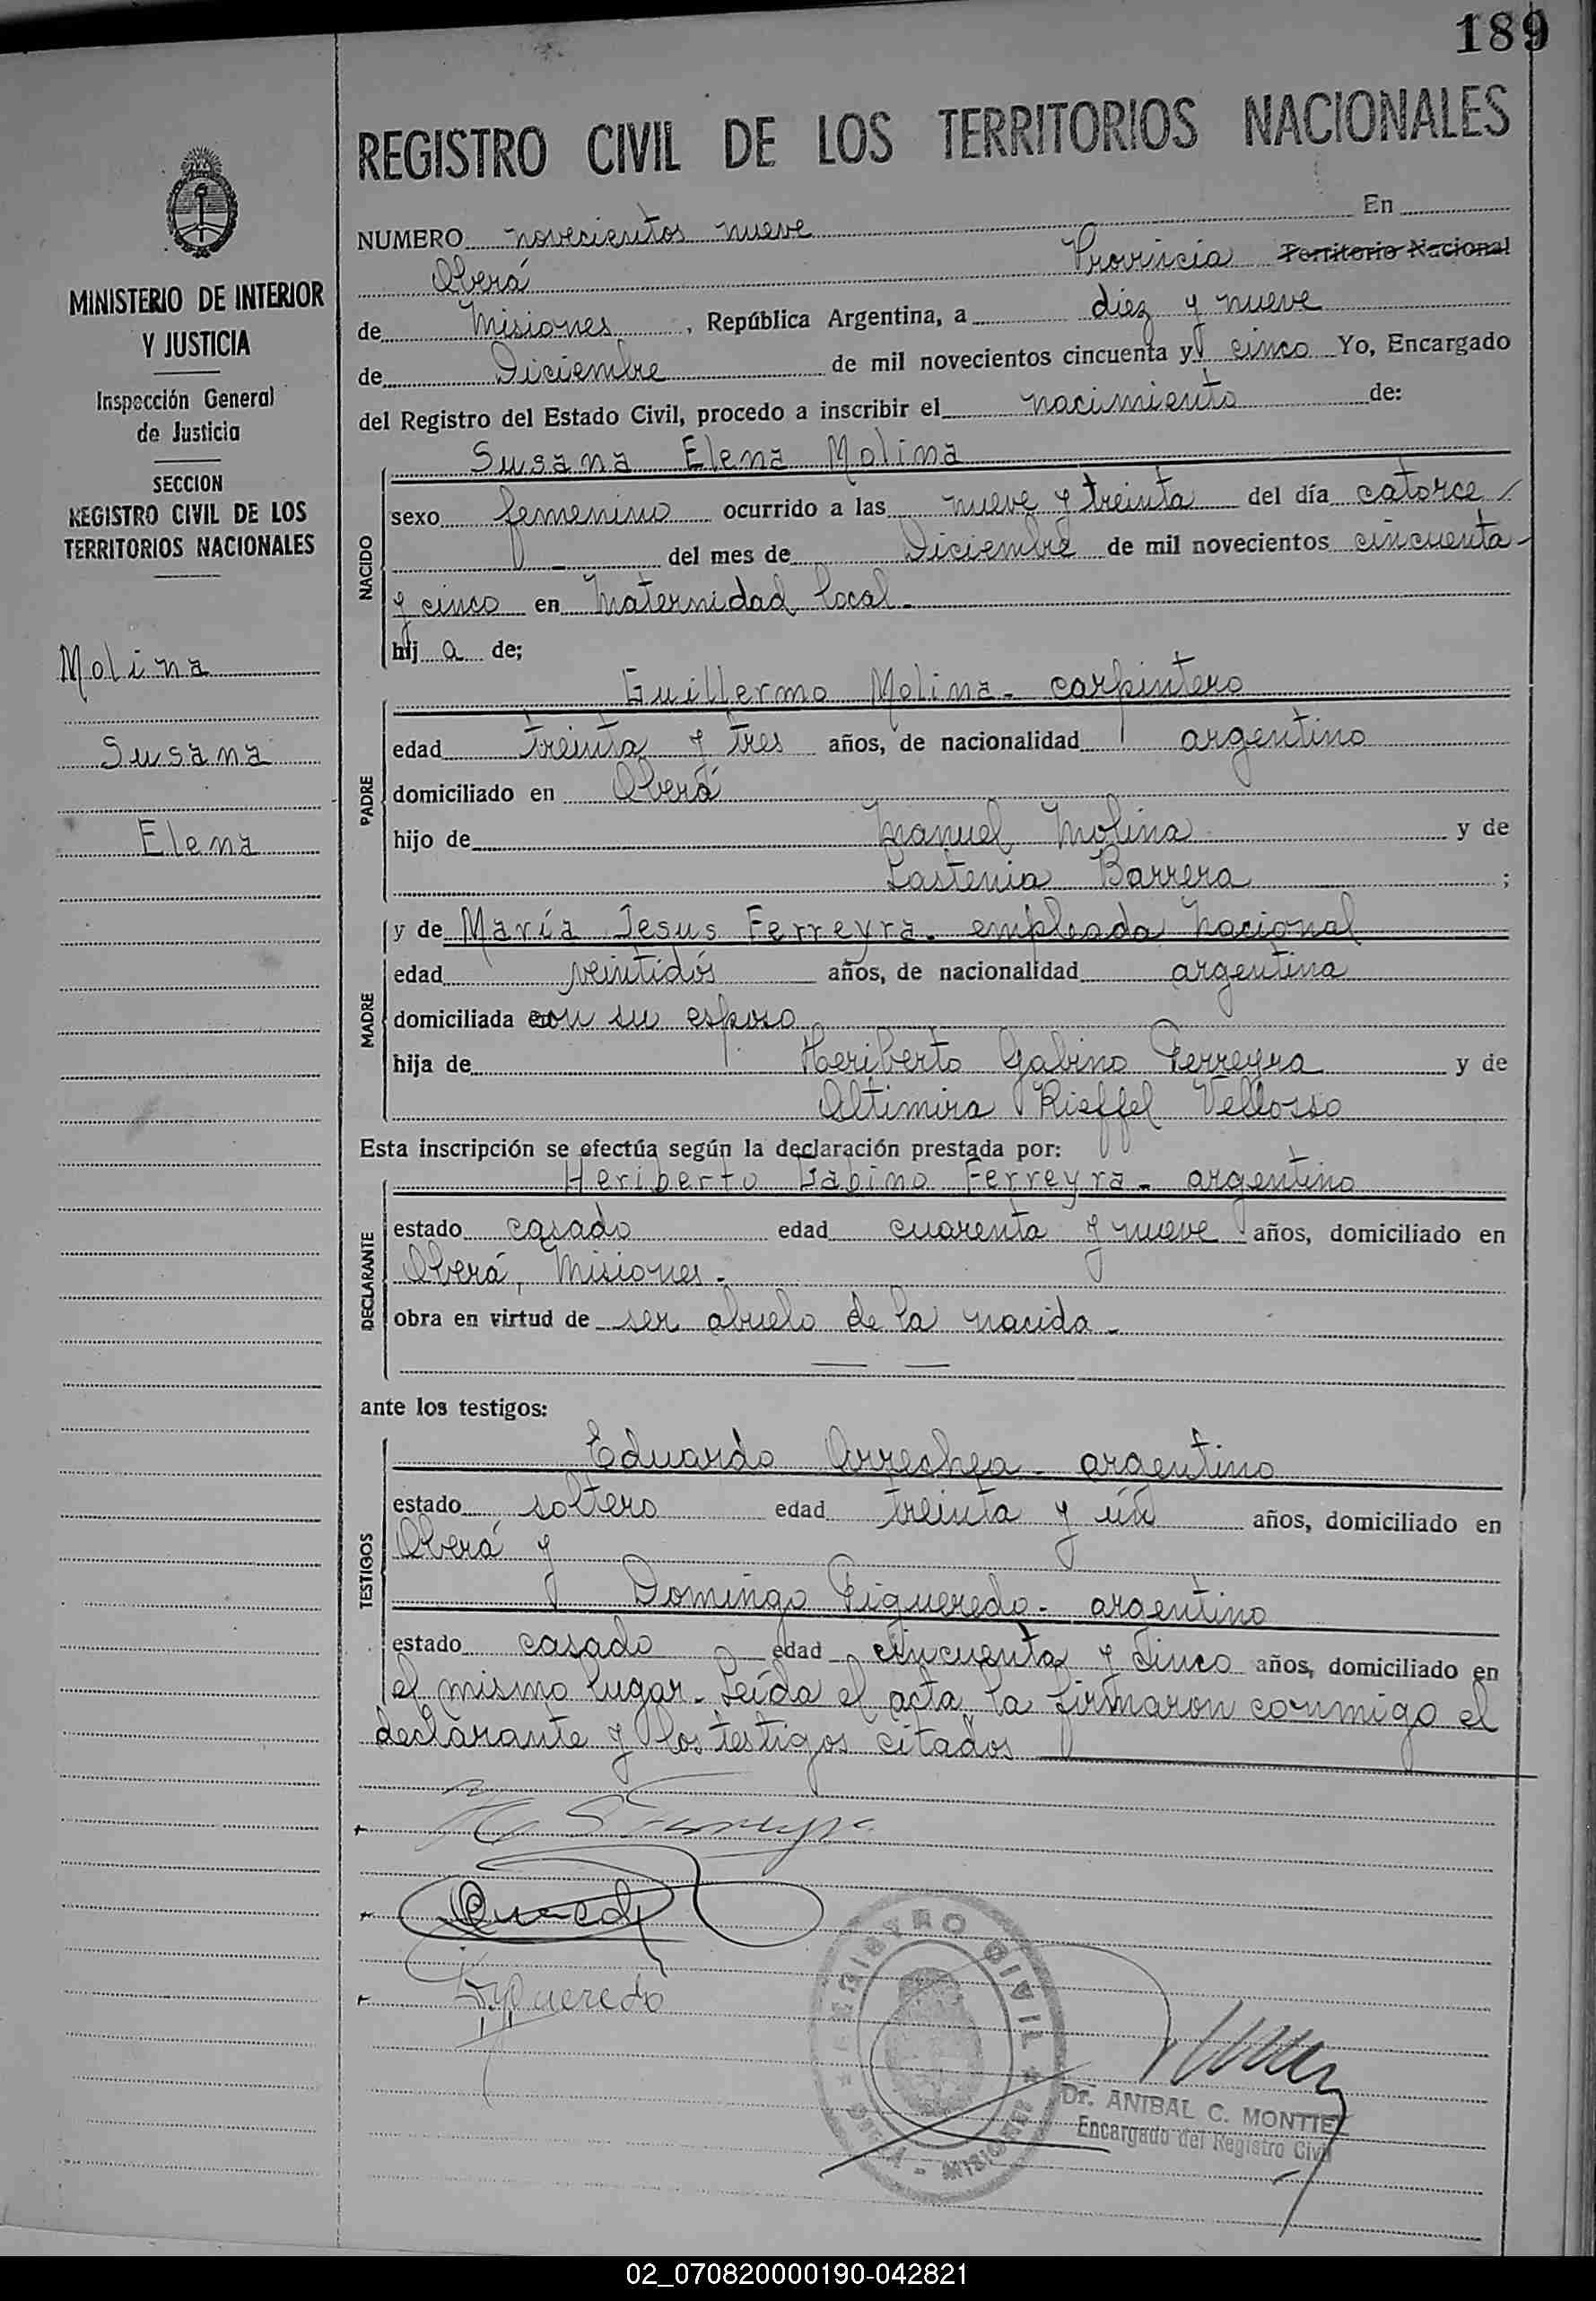 189
REGISTRO CIVIL DE LOS TERRITORIOS NACIONALES
MINISTERIO DE INTERIOR
Y JUSTICIA
Inspección General
de Justicia
SECCION
REGISTRO CIVIL DE LOS
TERRITORIOS NACIONALES
Molina
Susana
Elena
NUMERO novecientos nueve En
Oberá Provincia Territorio Nacional
de Misiones, República Argentina, a diez y nueve
de Diciembre de mil novecientos cincuenta y cinco Yo, Encargado
del Registro del Estado Civil, procedo a inscribir el nacimiento de:
NACIDO
Susana Elena Molina
sexo femenino ocurrido a las nueve y treinta del día catorce
del mes de Diciembre de mil novecientos cincuenta
y cinco en Maternidad local.
hij a de;
PADRE
Guillermo Molina - carpintero
edad treinta y tres años, de nacionalidad argentino
domiciliado en Oberá
hijo de Manuel Molina y de
Lastenia Barrera ;
MADRE
y de María Jesus Ferreyra - empleada nacional
edad veintidós años, de nacionalidad argentina
domiciliada con su esposo
hija de Heriberto Gabino Ferreyra y de
Altimira Rieffel Vellosso
Esta inscripción se efectúa según la declaración prestada por:
DECLARANTE
Heriberto Gabino Ferreyra - argentino
estado casado edad cuarenta y nueve años, domiciliado en
Oberá, Misiones -
obra en virtud de ser abuelo de la nacida -
ante los testigos:
TESTIGOS
Eduardo Arrechea - argentino
estado soltero edad treinta y un años, domiciliado en
Oberá y
Domingo Figueredo - argentino
estado casado edad cincuenta y cinco años, domiciliado en
el mismo lugar. Leída el acta, la firmaron conmigo el
declarante y los testigos citados
H G Ferreyra
Figueredo
REGISTRO CIVIL
OBERA - MISIONES
Dr. ANIBAL C. MONTIEL
Encargado del Registro Civil
02_070820000190-042821